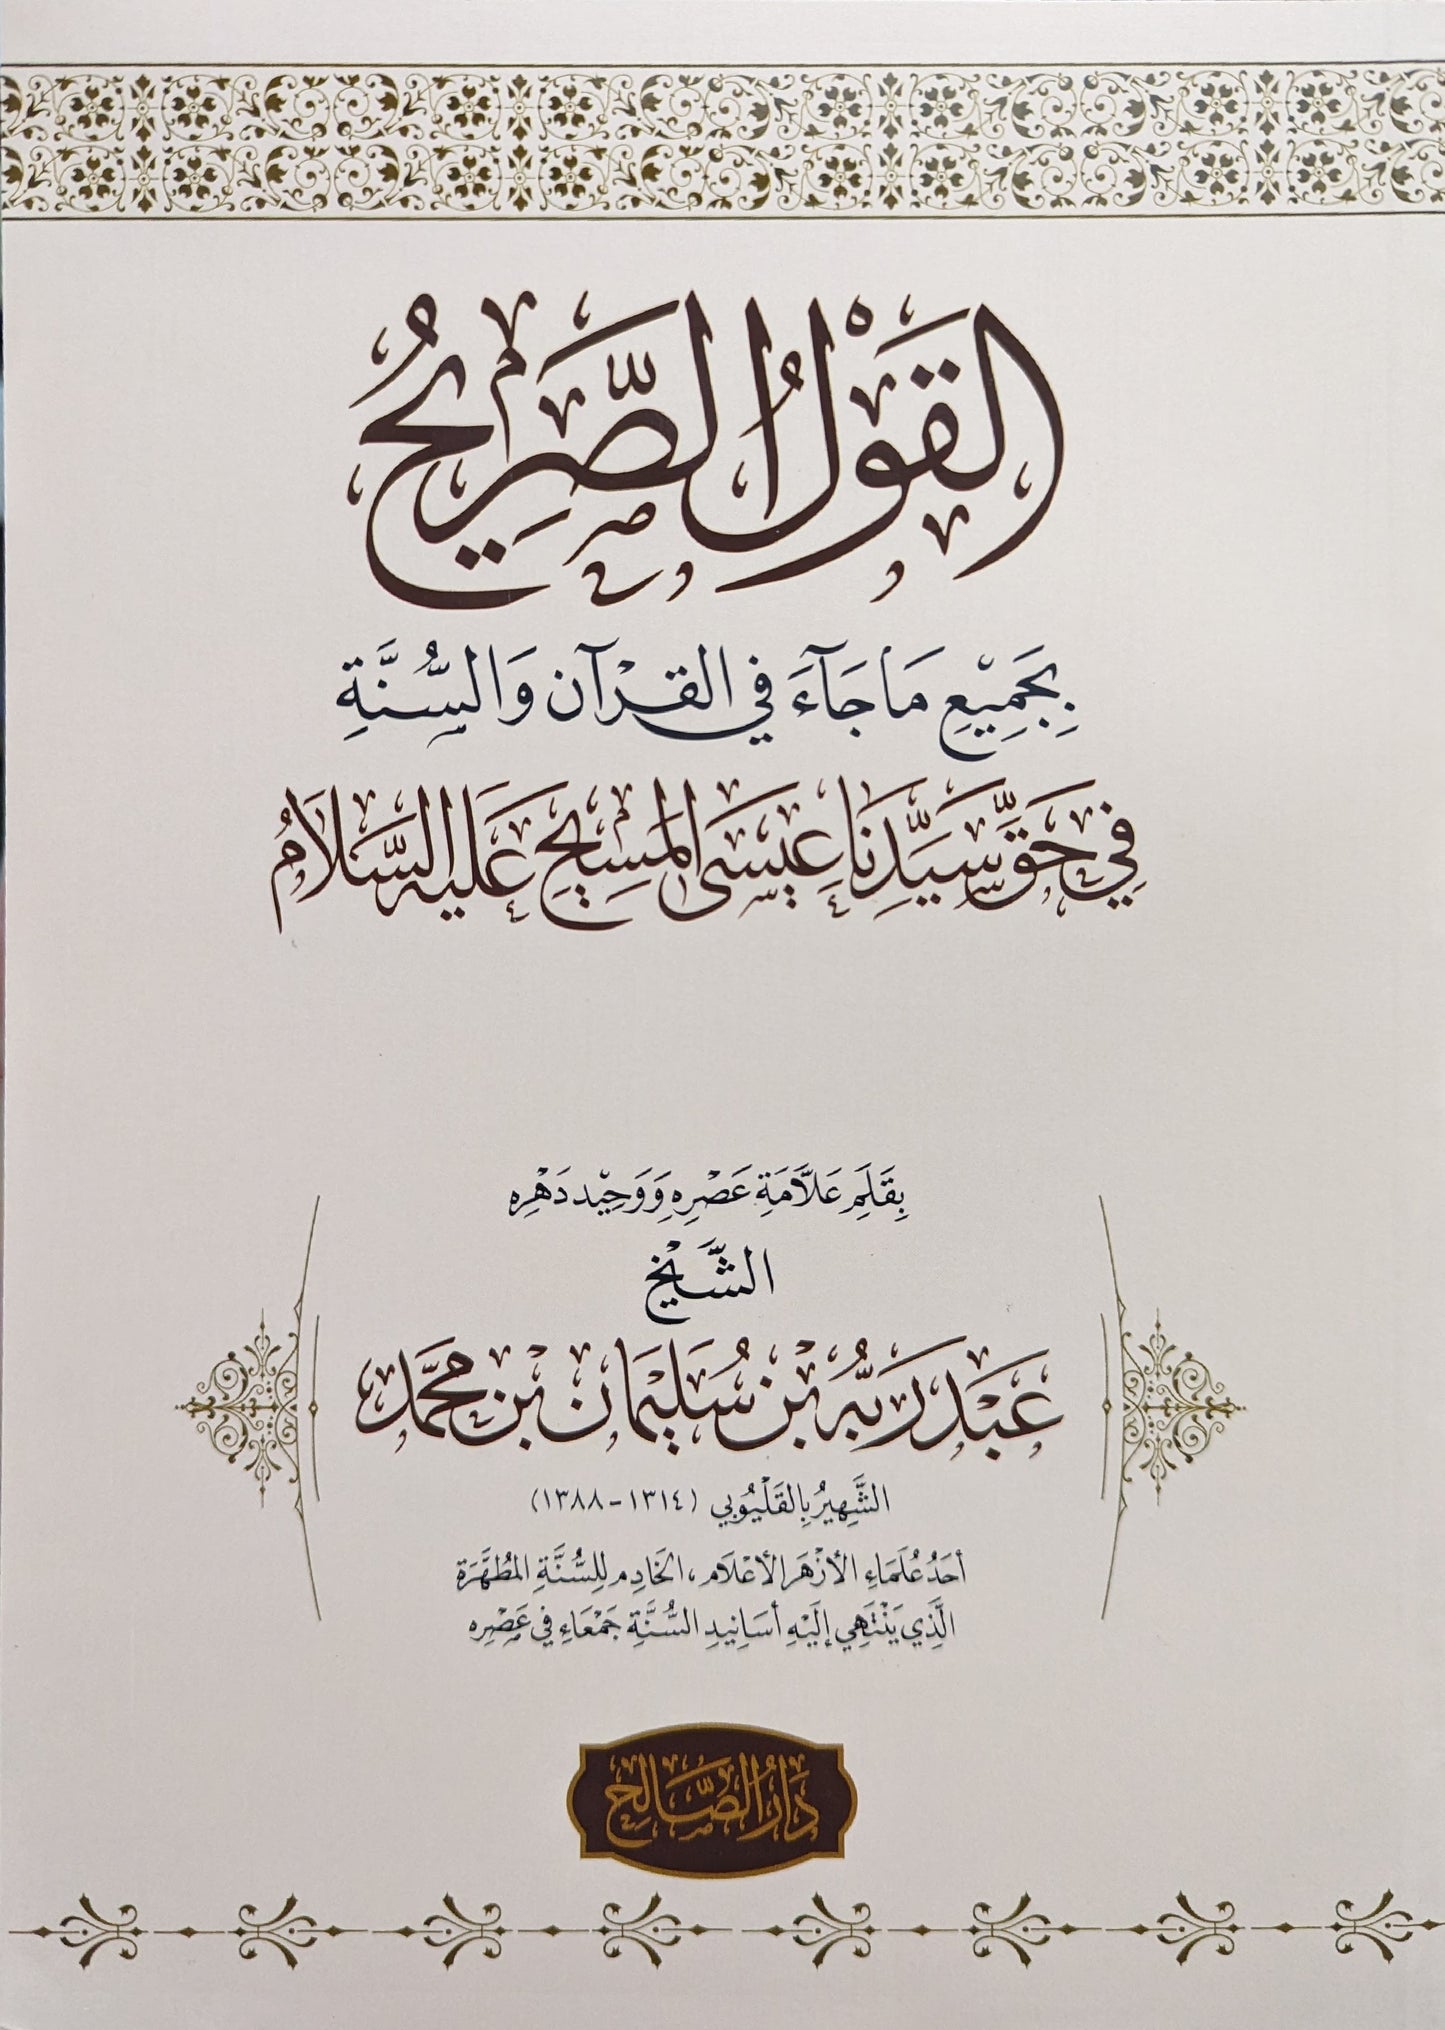 القَوْلُ الصَّرِيحُ
بِجَمِيْعِ مَا جَآءَ فِي القُرْآن وَالسُّنَّةِ
فِي حَقِّ سَيِّدِنَا عِيسَى المَسِيحِ عَلَيهِ السَّلَامُ
بِقَلَمِ عَلاَّمَةِ عَصْرِهِ وَوَحِيْد دَهْرِه
الشَّيْخ
عَبْد رَبِّه بْن سُلَيْمَان بْن مُحَمَّد
الشَّهِيرُ بِالقَلْيُوبي (١٣١٤-١٣٨٨)
أحَدُ عُلَمَاءِ الأزْهَر الأعْلَام، الخَادِم لِلسُّنَّةِ المُطَهَّرَة
الَّذِي يَنْتَهِي إلَيْهِ أسَانِيدِ السُّنَّةِ جَمْعَاءِ فِي عَصْرِه
دَارُ الصَّالِح